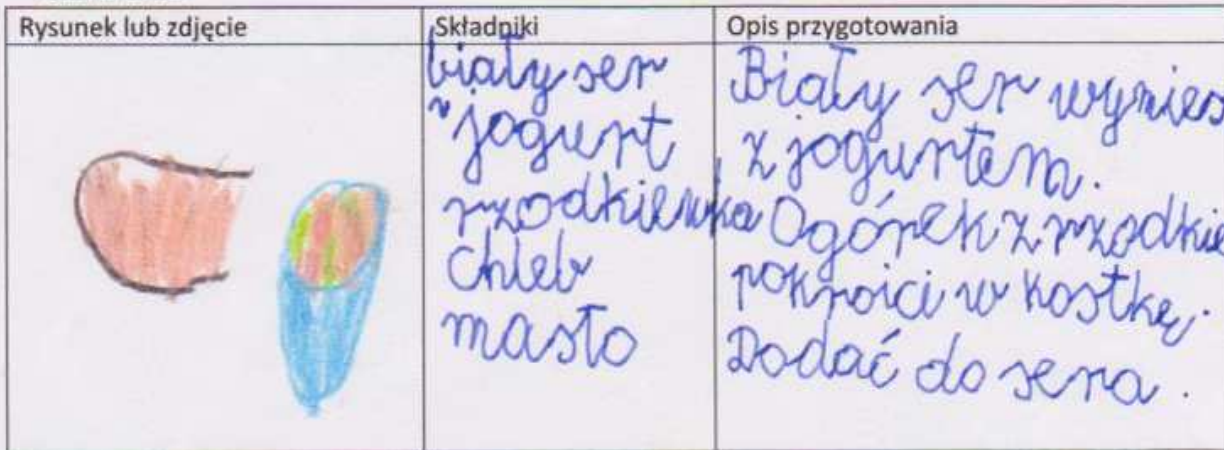 Rysunek lub zdjęcie
Składniki
Opis przygotowania
biały ser
jogurt
rzodkiewka
Chleb
masło
Biały ser wymies
z jogurtem.
Ogórek z rzodkie
pokroici w kostkę.
Dodać do sera.